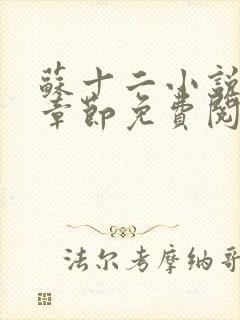 蘇十二小説
章節免費閱
法尔考摩纳哥